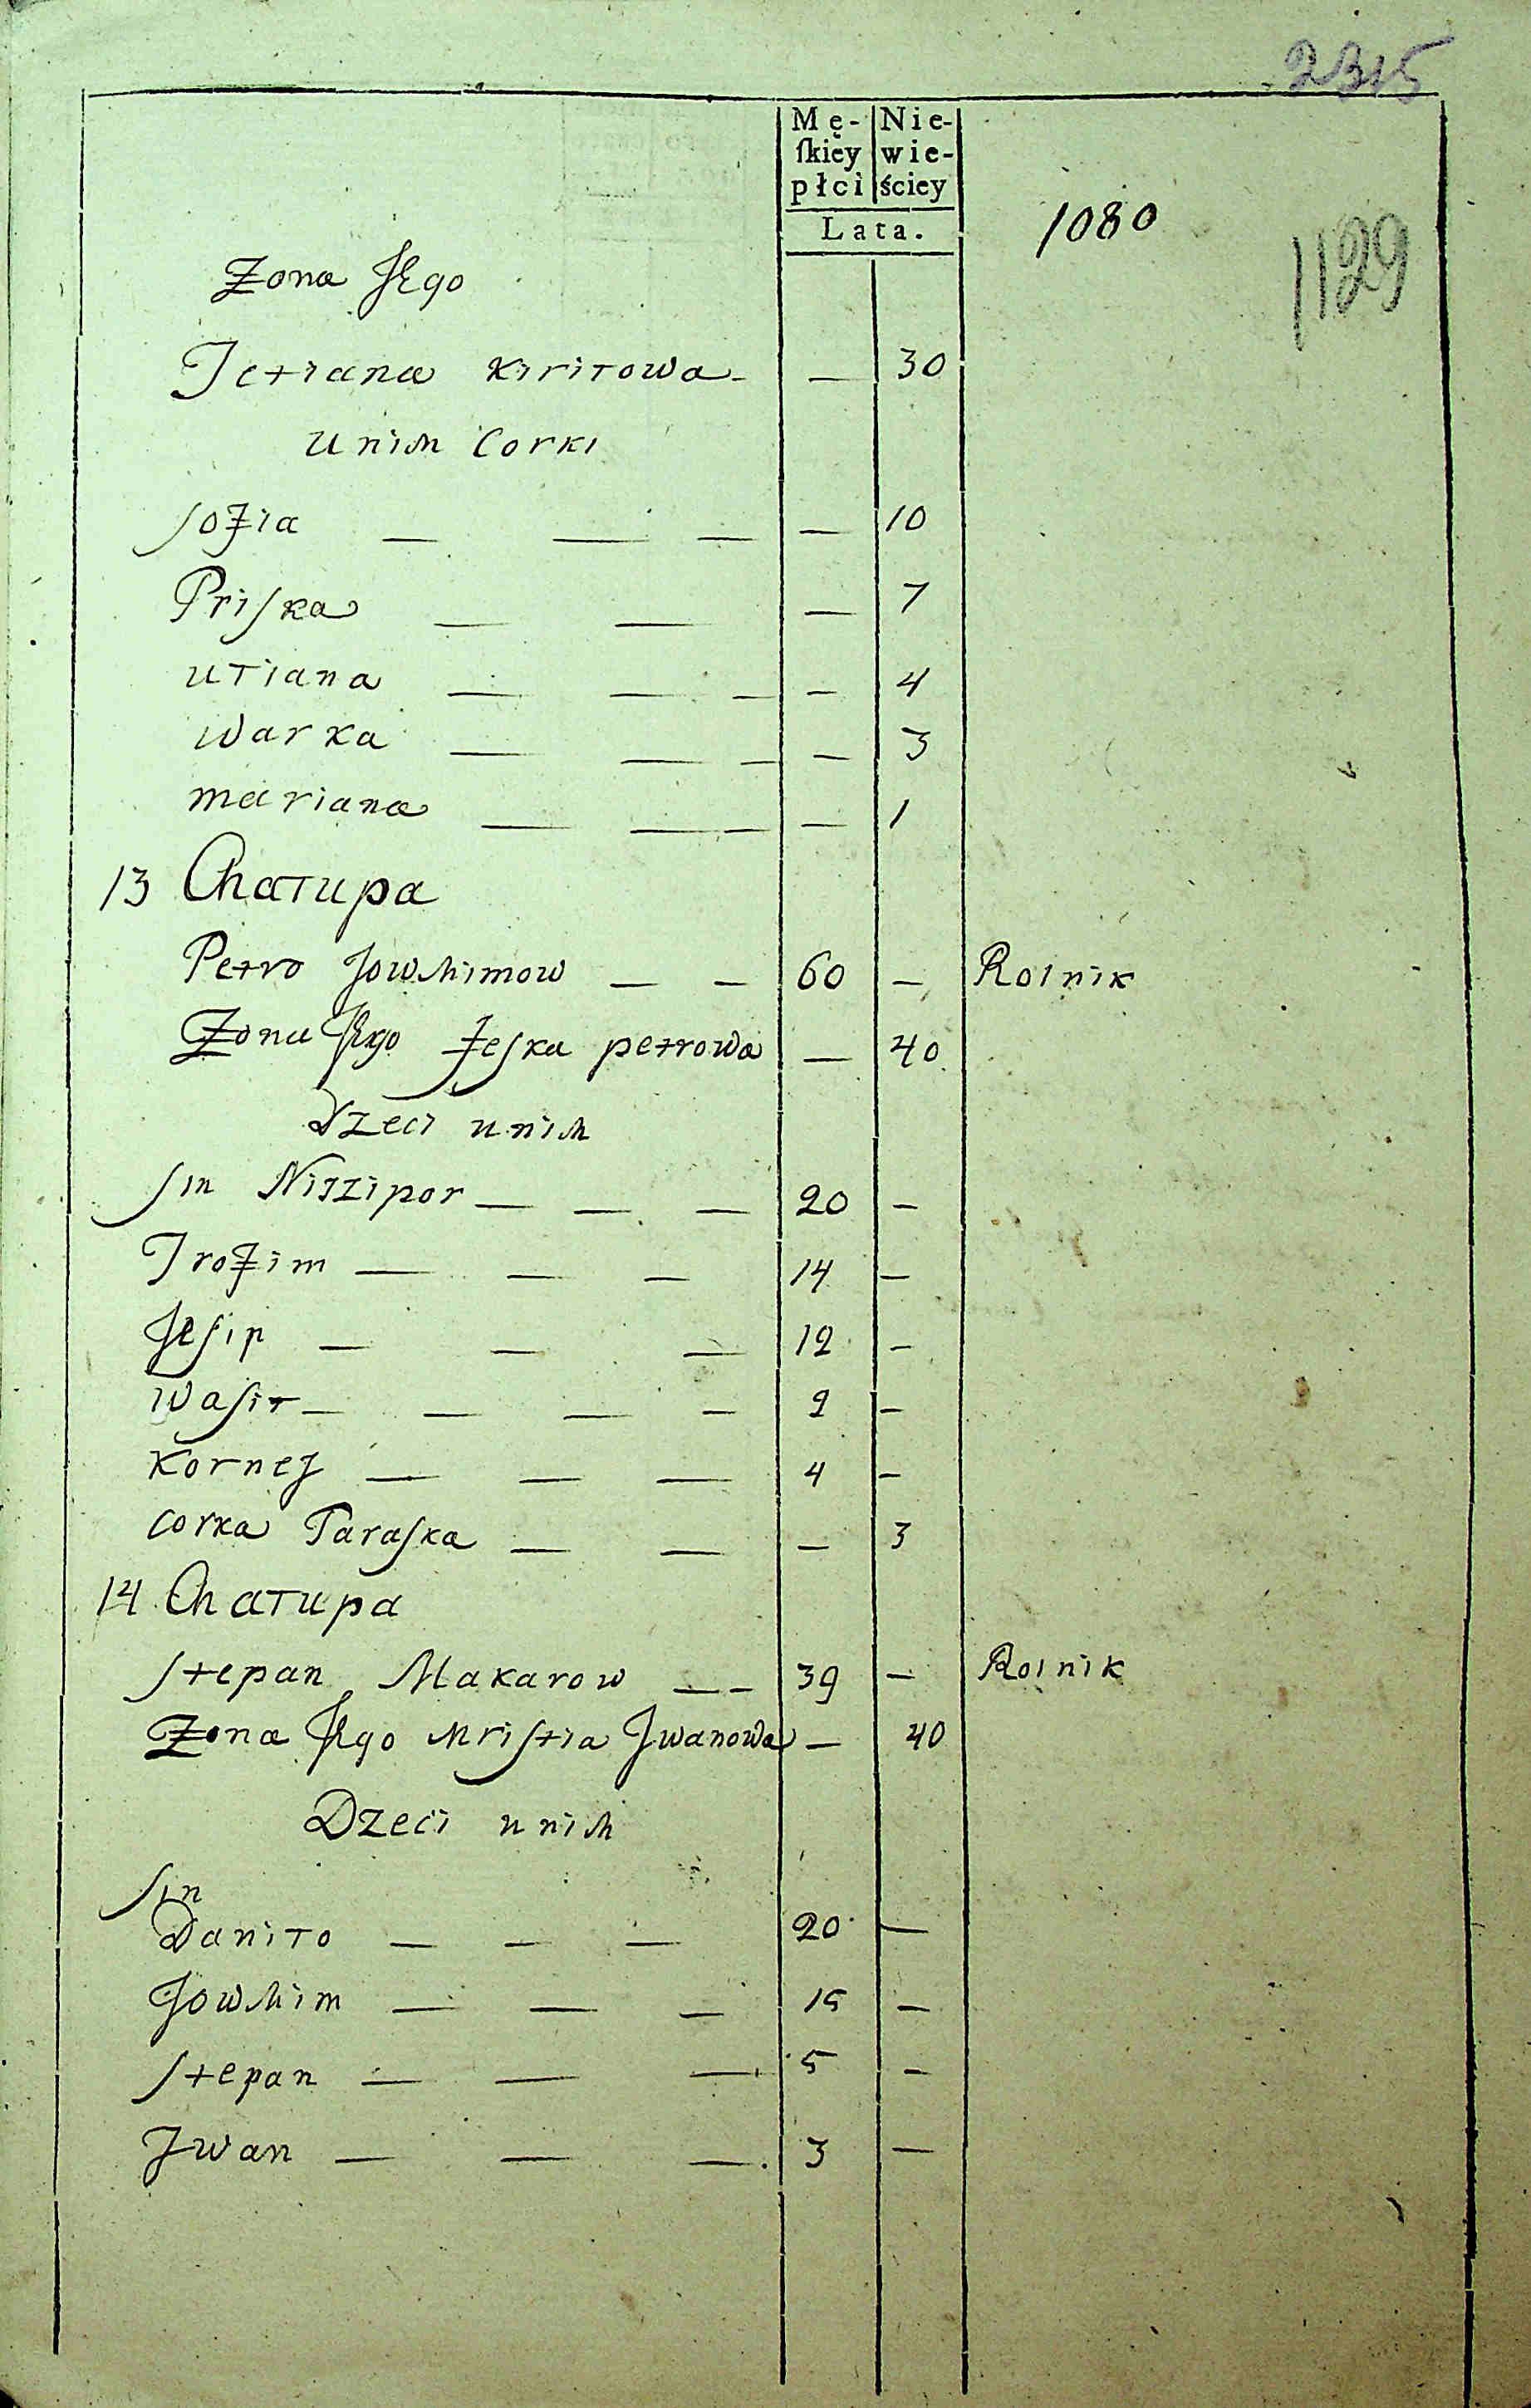 2315
Mę- Nie-
ſkiey wie-
płci ściey
Lata.
1080
1129
Zona JEgo
Tetiana Kiriłowa — 30
u nich Corki
Sofia — 10
Priska — 7
Uliana — 4
Warka — 3
Mariana — 1
13 Chałupa
Petro Jowchimow 60 — Rolnik
Zona JEgo Feska petrowa — 40
Dzeci u nich
Sin Niszipor 20 —
Trofim 14 —
JEsip 12 —
Wasil 9 —
Kornej 4 —
Corka Paraska — 3
14 Chałupa
Stepan Makarow 39 — Rolnik
Zona JEgo Christia Jwanowa — 40
Dzeci u nich
Sin
Daniło 20 —
Jowchim 15 —
Stepan 5 —
Jwan 3 —